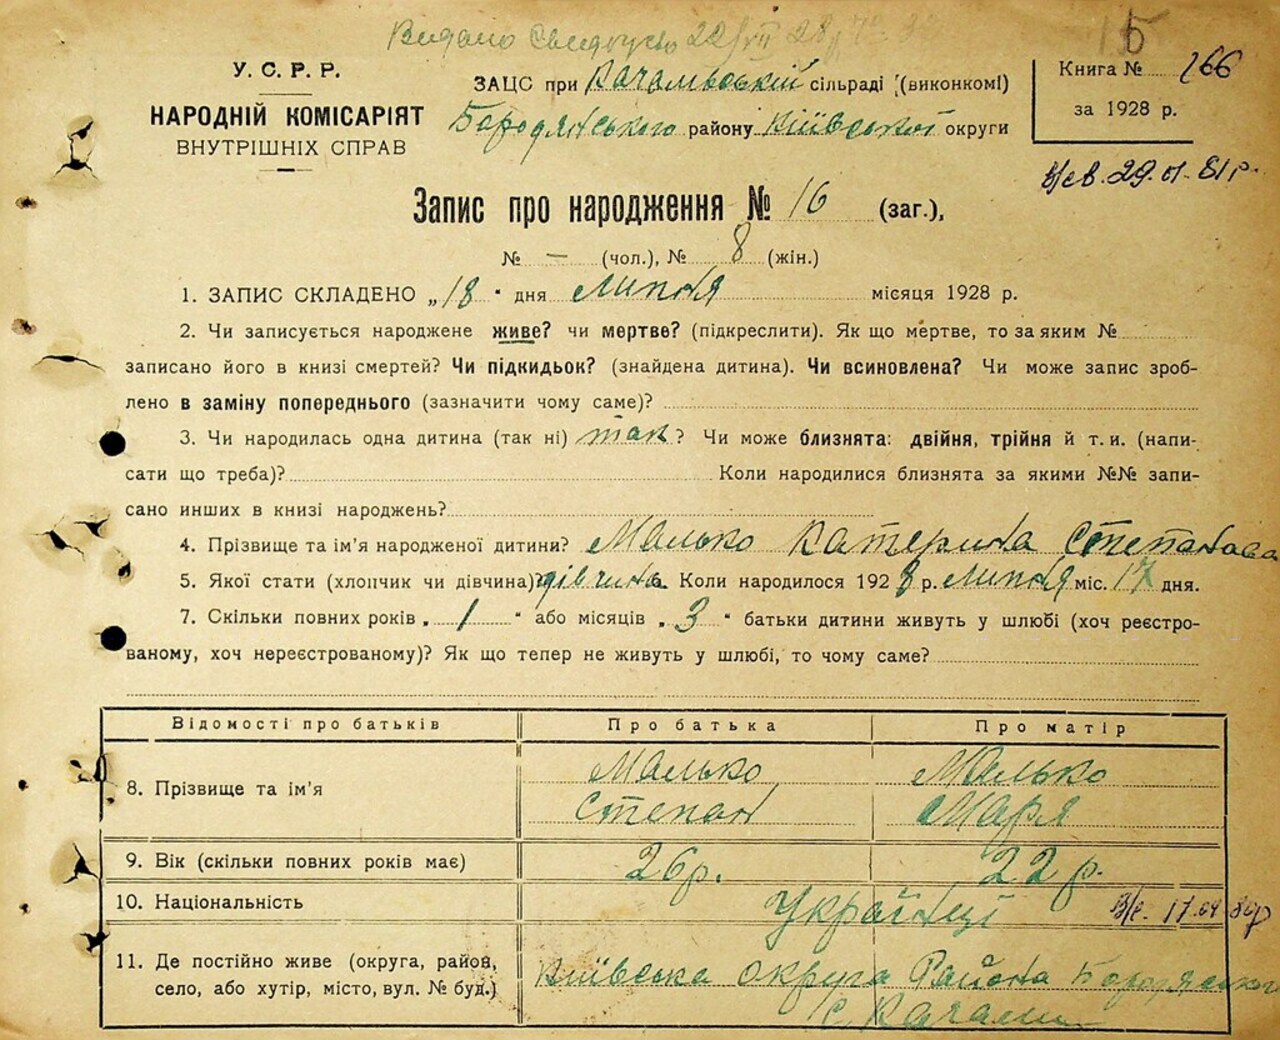 Видано Свидоцтво 22/VII 28
15
У. С. Р. Р.
НАРОДНІЙ КОМІСАРІЯТ
ВНУТРІШНІХ СПРАВ
ЗАЦС при Качальській сільраді (виконкомі)
Бородянського району Київської округи
Книга № 266
за 1928 р.
29.01.81р.
Запис про народження № 16 (заг.),
№ — (чол.), № 8 (жін.)
1. ЗАПИС СКЛАДЕНО „18" дня Липня місяця 1928 р.
2. Чи записується народжене живе? чи мертве? (підкреслити). Як що мертве, то за яким №
записано його в книзі смертей? Чи підкидьок? (знайдена дитина). Чи всиновлена? Чи може запис зроб-
лено в заміну попереднього (зазначити чому саме)?
3. Чи народилась одна дитина (так ні) так? Чи може близнята: двійня, трійня й т. и. (напи-
сати що треба)? Коли народилися близнята за якими №№ запи-
сано инших в книзі народжень?
4. Прізвище та ім'я народженої дитини? Малько Катерина Степанова
5. Якої стати (хлопчик чи дівчина)? дівчина Коли народилося 1928 р. Липня міс. 17 дня.
7. Скільки повних років „1" або місяців „3" батьки дитини живуть у шлюбі (хоч реєстро-
ваному, хоч нереєстрованому)? Як що тепер не живуть у шлюбі, то чому саме?
Відомості про батьків Про батька Про матір
8. Прізвище та ім'я Малько Степан Малько Маря
9. Вік (скільки повних років має) 26р. 22 р.
10. Національність Українці 17.04 80р
11. Де постійно живе (округа, район,
село, або хутір, місто, вул. № буд.)
Київська округа Района Бородянського
с. Качали